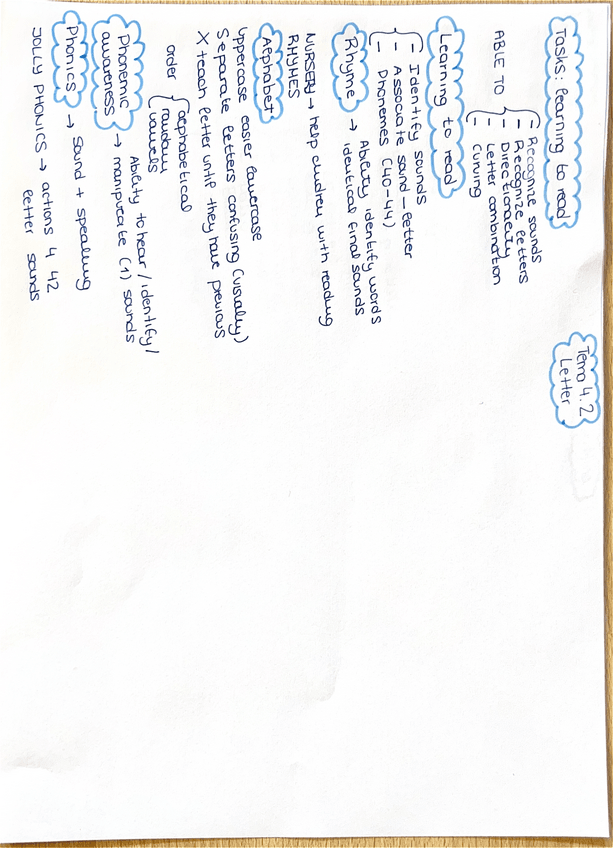 Tema 4.2
Letter
Tasks: learning to read
ABLE TO
- Recognize sounds
- Recognize letters
- Directionality
- Letter combination
Curving
Learning to read
- Identify sounds
- Associate sound - letter
- Phonemes (40-44)
Rhyme → Ability identify words
identical final sounds
NURSERY → help children with reading
RHYMES
Alphabet
Uppercase easier lowercase
Separate letters confusing (visually)
X teach letter until they have previous
order
alphabetical
random
vowels
Phonemic
awareness → Ability to hear / identify /
manipulate (1) sounds
Phonics → sound + speaking
JOLLY PHONICS → actions 4 42
letter sounds